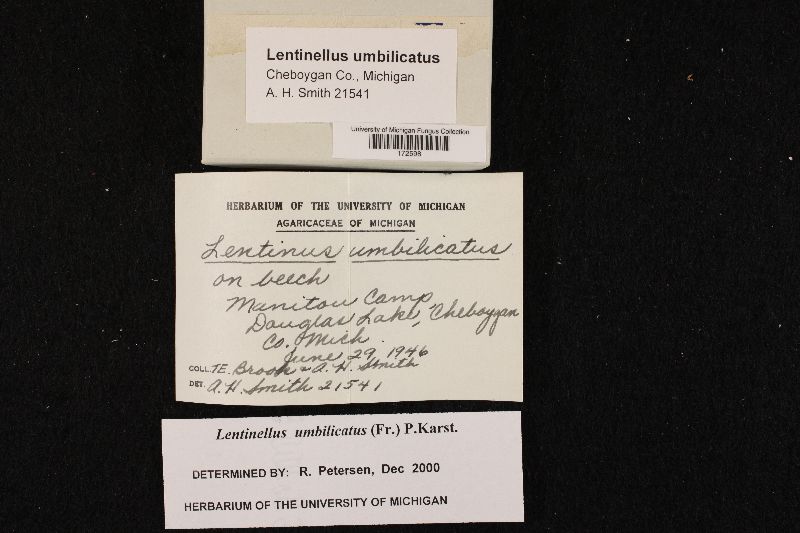 Lentinellus umbilicatus
Cheboygan Co., Michigan
A. H. Smith 21541
University of Michigan Fungus Collection
172598
HERBARIUM OF THE UNIVERSITY OF MICHIGAN
AGARICACEAE OF MICHIGAN
Lentinus umbilicatus
on beech
Manitou Camp
Douglas Lake, Cheboygan
Co. Mich.
June 29, 1946
COLL. T.E. Brook & A. H. Smith
DET. A. H. Smith 21541
Lentinellus umbilicatus (Fr.) P.Karst.
DETERMINED BY: R. Petersen, Dec 2000
HERBARIUM OF THE UNIVERSITY OF MICHIGAN